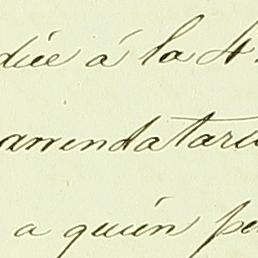 dice á la 4
arrendatari
a quién pe